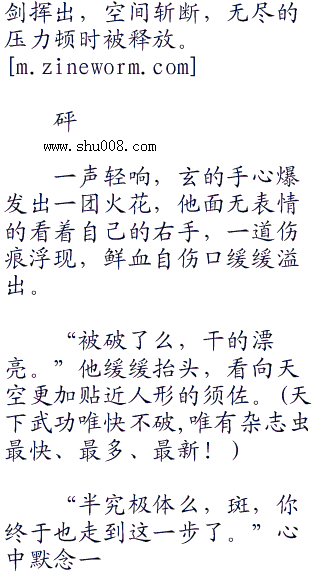 剑挥出，空间斩断，无尽的
压力顿时被释放。
[m.zineworm.com]
砰
www.shu008.com
一声轻响，玄的手心爆
发出一团火花，他面无表情
的看着自己的右手，一道伤
痕浮现，鲜血自伤口缓缓溢
出。
“被破了么，干的漂
亮。”他缓缓抬头，看向天
空更加贴近人形的须佐。(天
下武功唯快不破,唯有杂志虫
最快、最多、最新！)
“半究极体么，斑，你
终于也走到这一步了。”心
中默念一